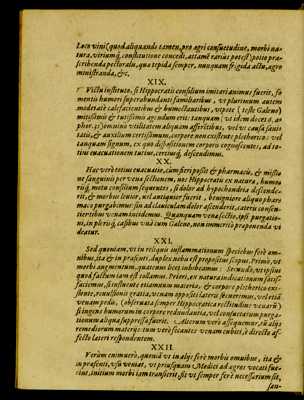 Loco vini (quod aliquando tamen, pro ægri consuetudine, morbi na-
tura, viriumq́; constitutione concedi, attamé rarius potest) potio præ-
scribenda pectoralis, qua tepida semper, nunquam frigida actu, ægro
ministranda, &c.
XIX.
Victu instituto, si Hippocratis consilium imitari animus fuerit, fo
mentis humori superabundanti familiaribus, ut plurimum autem
moderate calefacientibus & humectantibus, utpote (teste Galeno)
mitissimis & tutissimis agendum erit: tanquam
phor. 31) omninò utilitatem aliquam afferétibus, vel ut causæ sanit
tatis, & auxilium certissimum, corpore non existente plethorico: vel
tanquam signum, ex quo dispositionem corporis cognoscentes, ad to-
tius euacuationem tutius, certiusq́; descendimus.
XX.
Hæc verò totius euacuatio, cùm fieri possit & pharmacis, & missio
ne sanguinis per venæ sectionem, nos Hippocratis ex natura, humo
risq́; motu consilium sequentes, si dolor ad hypochondria descende-
rit, & morbus leuior, nec antiquior fuerit, benigniore aliquo phar-
maco purgabimus: sin ad clauiculam dolor ascenderit, latens consen-
tientibus venam incidemus. Quanquam venæ sectio, ipsi purgatio-
ni, in plerisq́; casibus unà cum Galeno, non immeritò præponenda vi
deatur.
XXI.
Sed quoniam, ut in reliquis inflammationum speciebus ferè om-
nibus, ita & in præsenti, duplex nobis est propositus scopus. Primò, ut
morbi augmentum, quatenus licet inhibeamus: Secundò, ut ipsum
quod factum iam est tollamus. Priori, ex natura indicationum satis-
faciemus, si influente etiamnum materia, & corpore plethorico exi-
stente, reuulsionis gratia, venam oppositi lateris secuerimus, vel etiã
venam pedis, (obseruata semper Hippocratica rectitudine venarũ)
si ingens humorum in corpore redundantia, vel consuetarum purga-
tionum aliqua suppressa fuerit. Alterum verò assequemur, si alijs
remediorum materijs: tum verò secantes venam cubiti, è directo af-
fecto lateri respondentem.
XXII.
Verùm enimuerò, quemad ut in alijs ferè morbis omnibus, ita &
in præsenti, usu veniat, ut priusquam Medici ad ægros vocati fue-
rint, initium morbi iam transierit, sit ut semper ferè necessarium sit,
san-